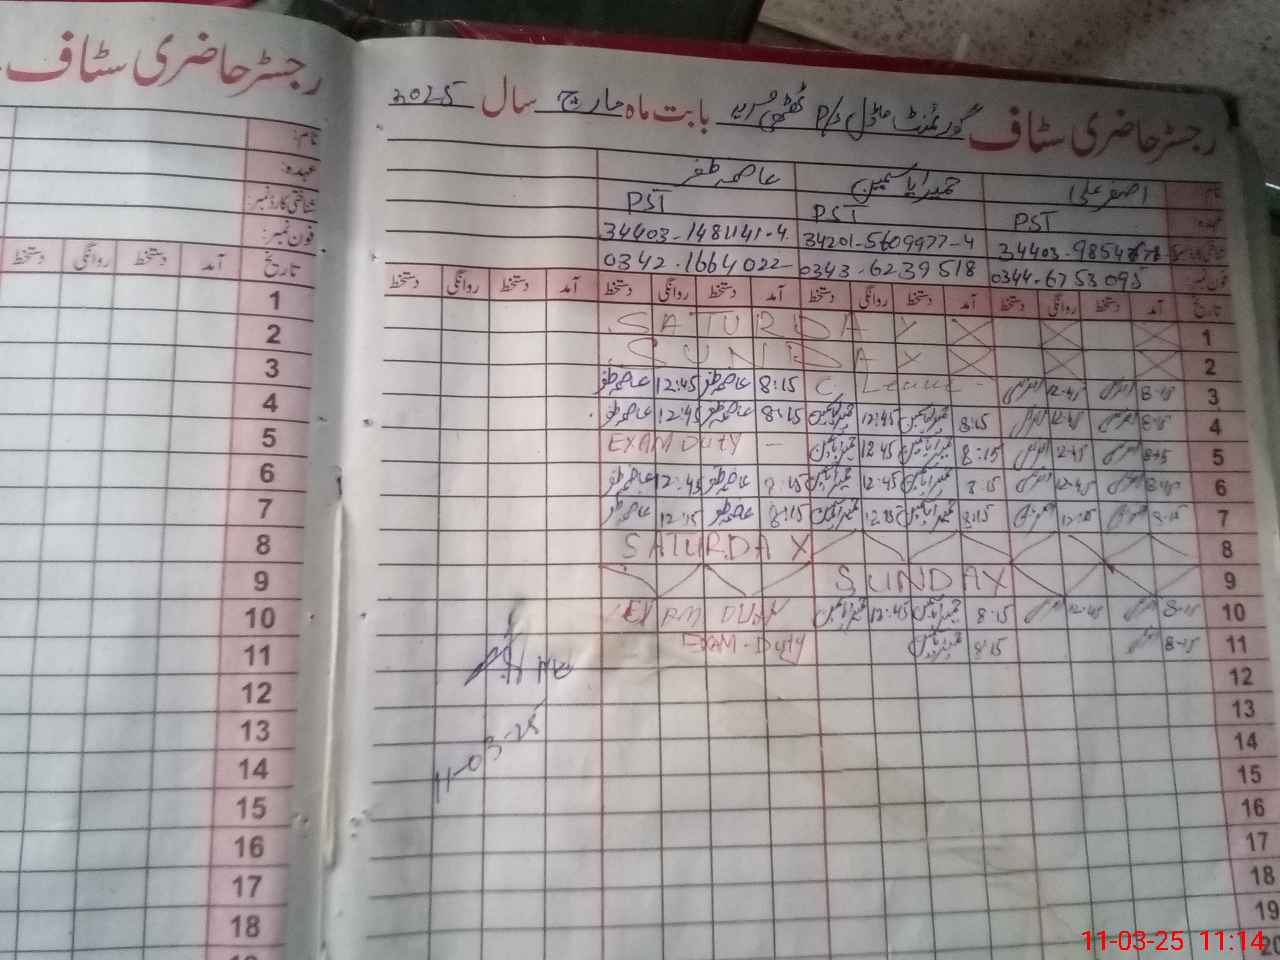 رجسٹر حاضری سٹاف
نام:
عہدہ:
شناختی کارڈ نمبر:
فون نمبر:
تاریخ آمد دستخط روانگی دستخط
1
2
3
4
5
6
7
8
9
10
11
12
13
14
15
16
17
18
رجسٹر حاضری سٹاف گورنمنٹ ماڈل P/S بابت ماہ مارچ سال 2025
نام اصغر علی حمیرا یاسمین عاصمہ ظفر
عہدہ PST PST PST
34403-9854 34201-5609977-4 34403-1481141-4
فون نمبر 0344-6753095 0343-6239518 0342-1664022
تاریخ آمد دستخط روانگی دستخط آمد دستخط روانگی دستخط آمد دستخط روانگی دستخط آمد دستخط روانگی دستخط
1 SATURDAY
2 SUNDAY
3 8-15 12-45 C. Leave - 8:15 عاصمہ ظفر 12:45 عاصمہ ظفر
4 8-15 12-45 8:15 حمیرا یاسمین 12:45 حمیرا یاسمین 8:15 عاصمہ ظفر 12:45 عاصمہ ظفر
5 8-15 12-45 8:15 حمیرا یاسمین 12:45 حمیرا یاسمین EXAM Duty -
6 8-15 12-45 8:15 حمیرا یاسمین 12:45 حمیرا یاسمین 8:15 عاصمہ ظفر 12:45 عاصمہ ظفر
7 8-15 8:15 حمیرا یاسمین 8:15 عاصمہ ظفر عاصمہ ظفر
8 SATURDAY
9 SUNDAY
10 8-15 12-45 8:15 حمیرا یاسمین 12:45 حمیرا یاسمین EXAM Duty
11 8-15 8:15 حمیرا یاسمین EXAM-Duty
12
13
14
15
16
17
18
19
20
11-03-25
11-03-25 11:14